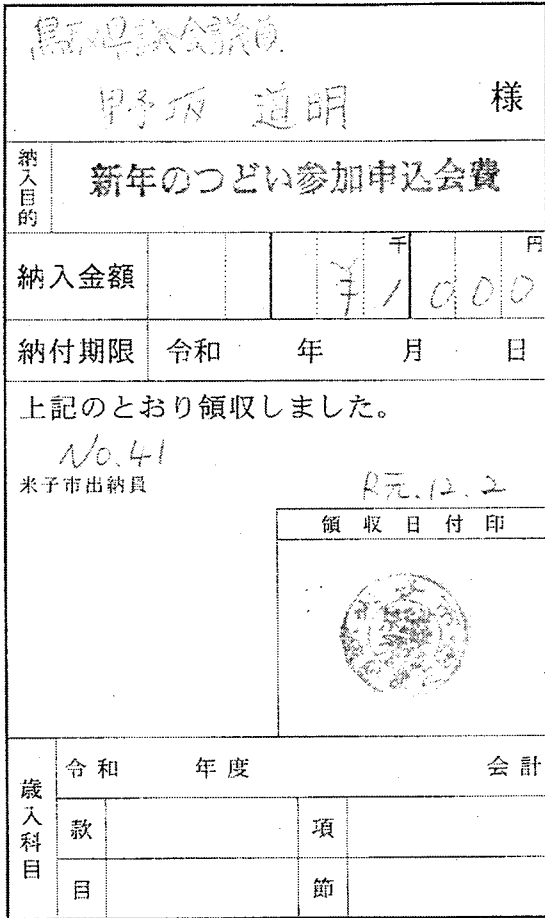 鳥取県議会議員
野坂 道明 様
納入目的 新年のつどい参加申込会費
納入金額 千 円
¥1000
納付期限 令和 年 月 日
上記のとおり領収しました。
No.41
米子市出納員
R元.12.2
領収日付印
歳入科目
令和 年度 会計
款 項
目 節